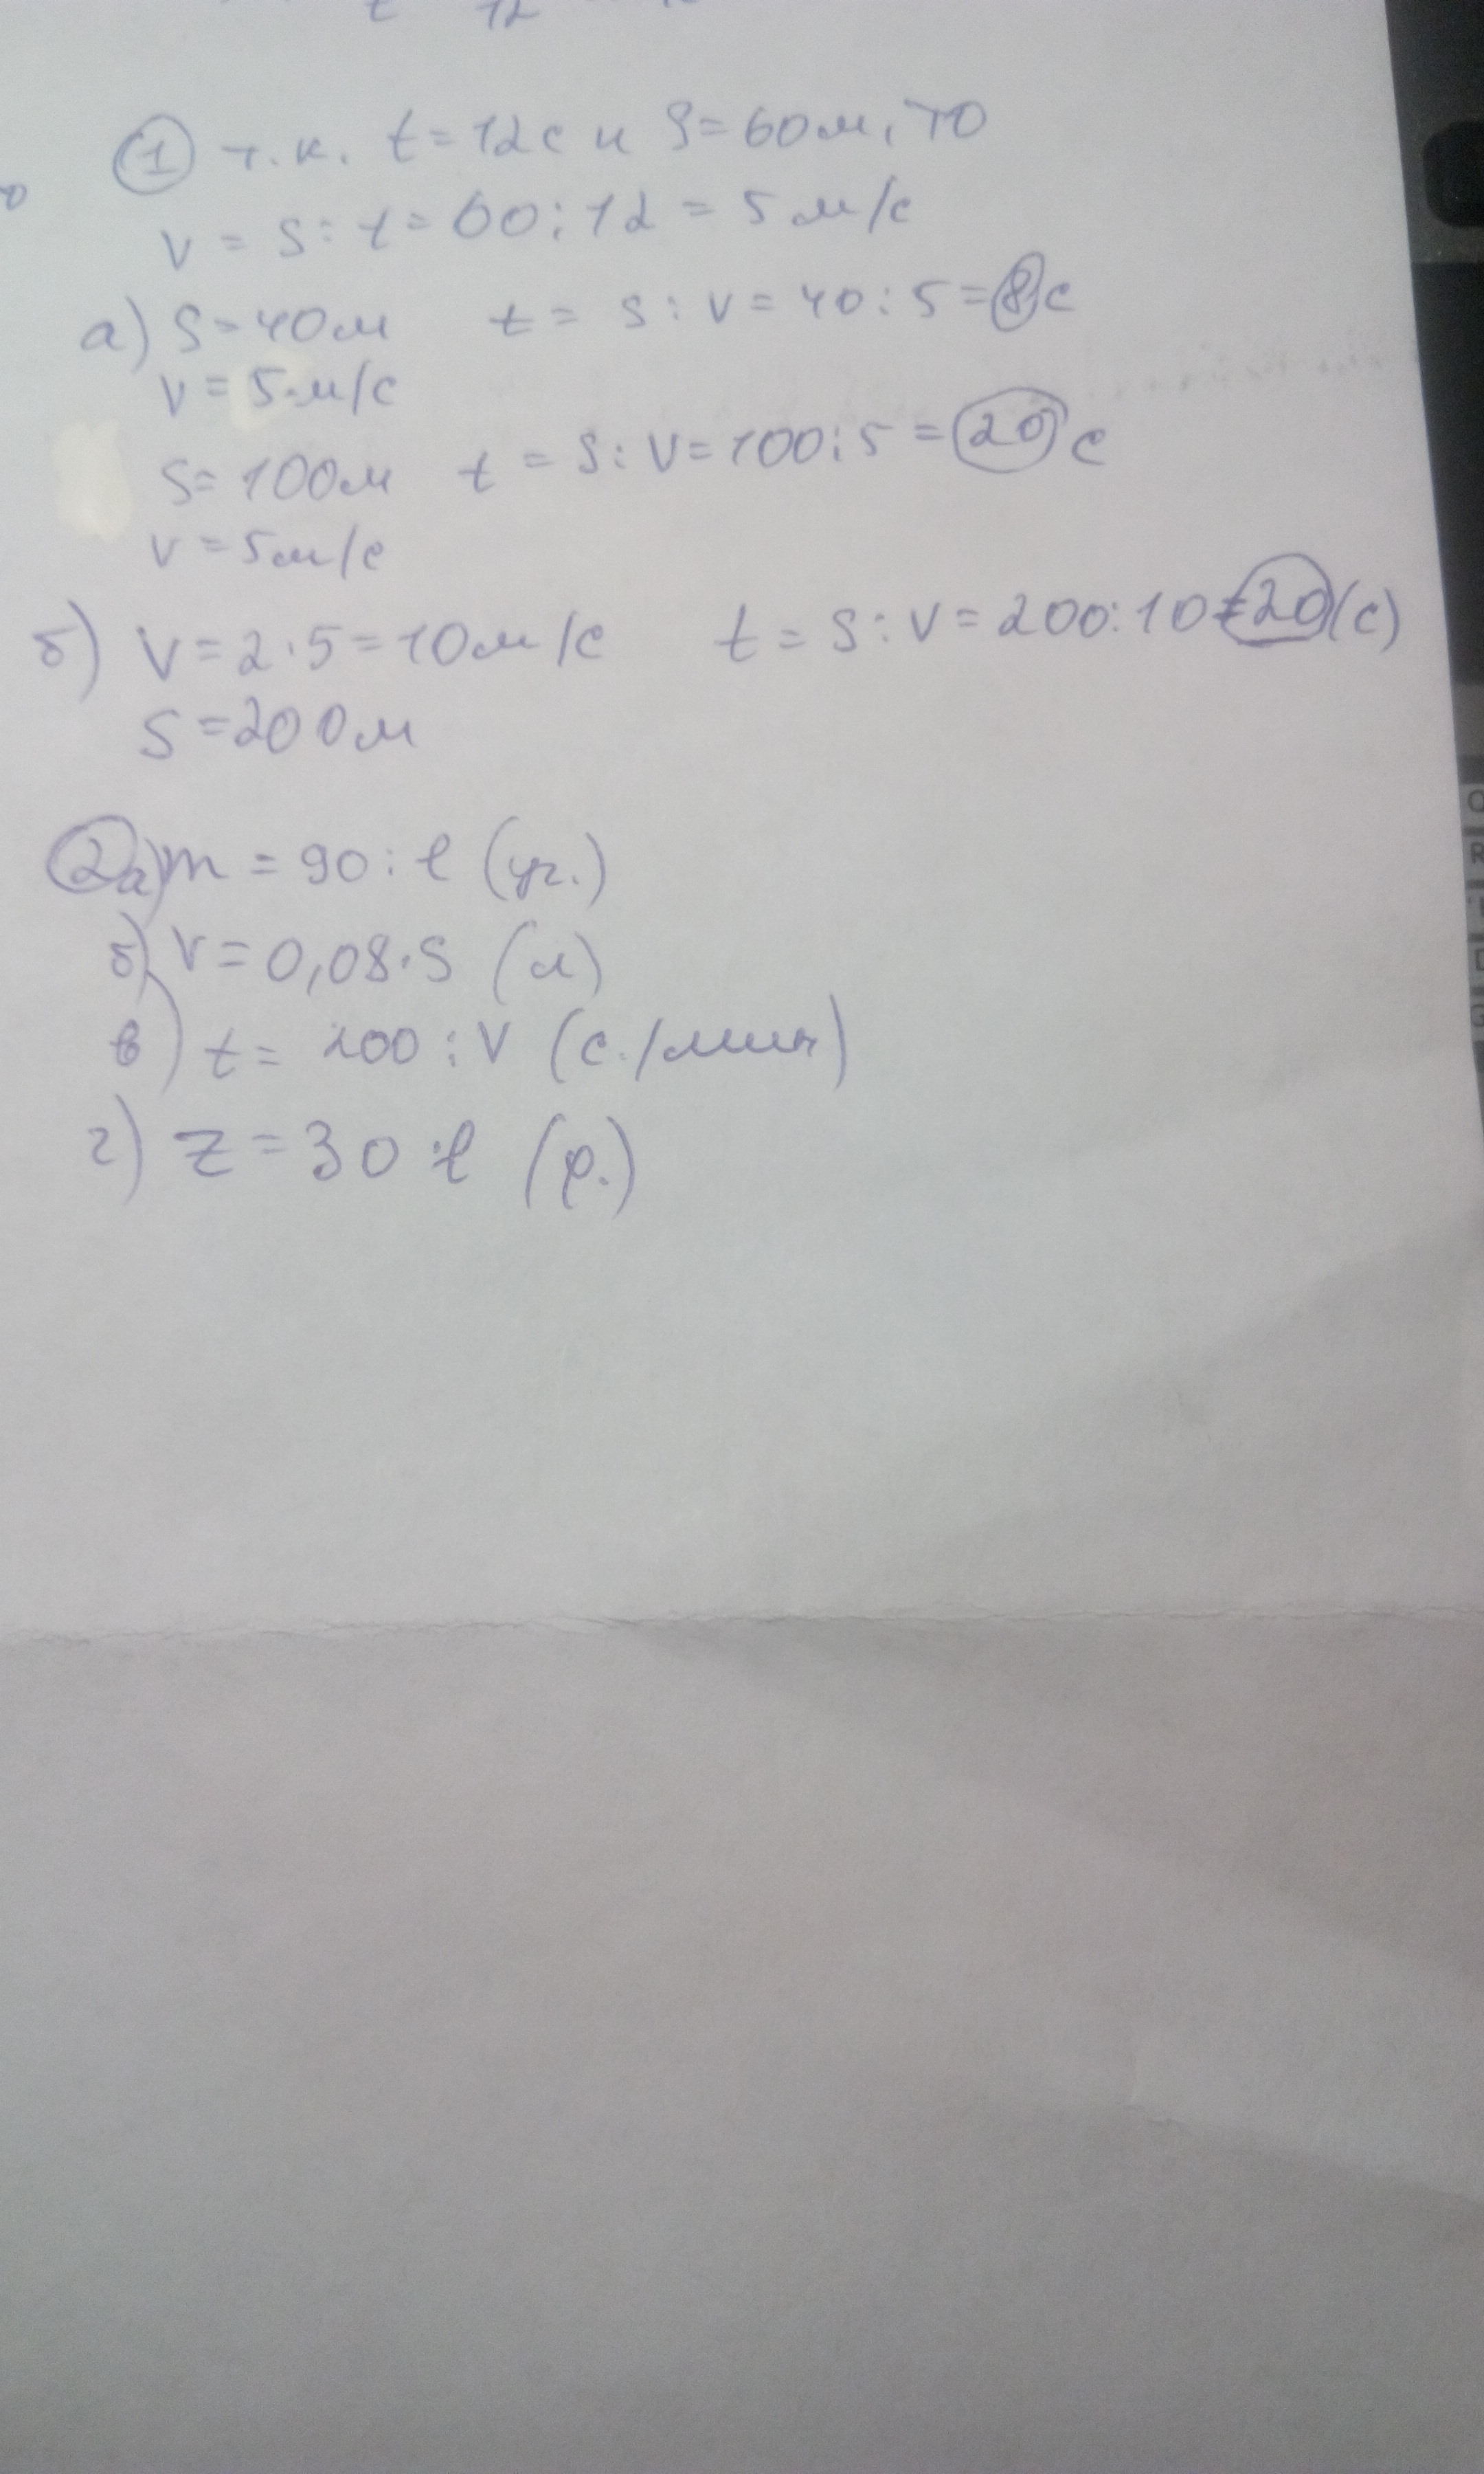 t 12
① т.к. t=12с и S=60м, то
V = S : t = 60 : 12 = 5 м/с
а) S=40м t = S : V = 40 : 5 = 8 с
V = 5 м/с
S= 100м t = S : V = 100 : 5 = 20 с
V = 5м/с
б) V = 2·5=10м/с t = S : V = 200:10=20(с)
S=200м
② а) m = 90 : l (уч.)
б) V= 0,08·S (л)
в) t = 200 : V (с./мин)
г) z = 30 : l (р.)